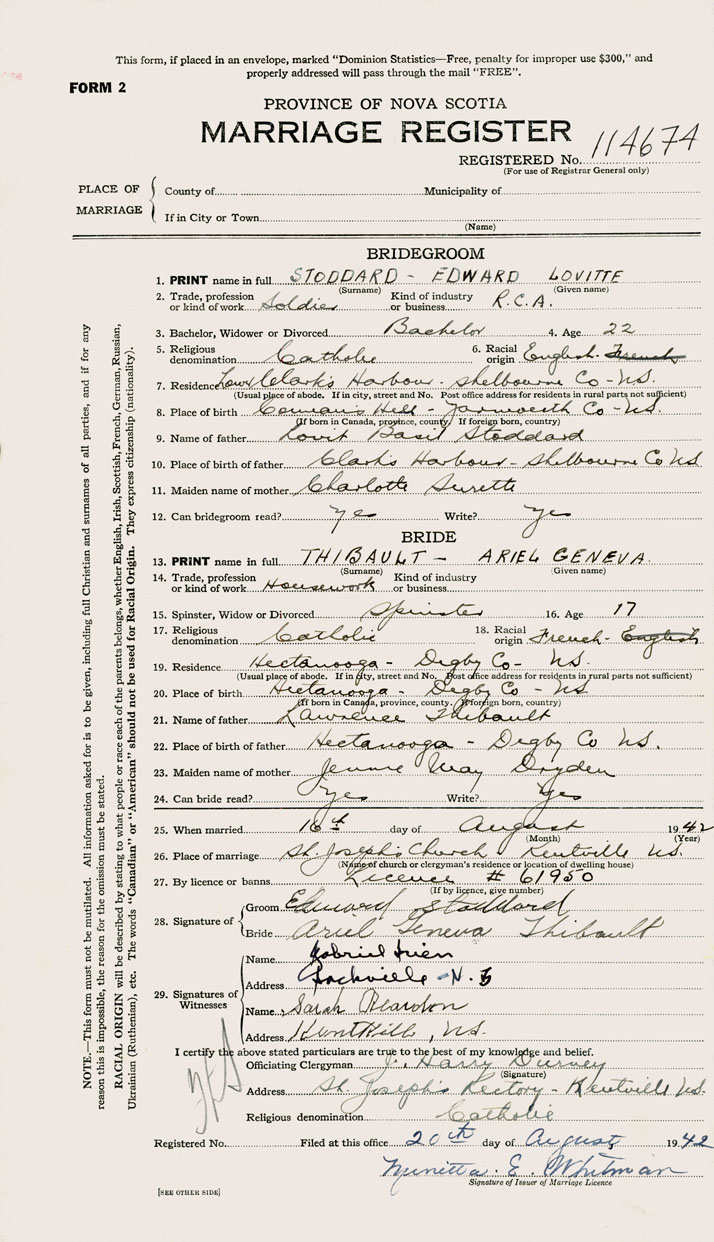 This form, if placed in an envelope, marked "Dominion Statistics—Free, penalty for improper use $300," and
properly addressed will pass through the mail "FREE".
FORM 2
PROVINCE OF NOVA SCOTIA
MARRIAGE REGISTER
REGISTERED No. 114674
(For use of Registrar General only)
PLACE OF MARRIAGE
County of Municipality of
If in City or Town
(Name)
BRIDEGROOM
1. PRINT name in full STODDARD - EDWARD LOVITTE
(Surname) (Given name)
2. Trade, profession or kind of work Soldier Kind of industry or business R.C.A.
3. Bachelor, Widower or Divorced Bachelor 4. Age 22
5. Religious denomination Catholic 6. Racial origin English - French
7. Residence Clark's Harbour - Shelbourne Co - N.S.
(Usual place of abode. If in city, street and No. Post office address for residents in rural parts not suffient)
8. Place of birth Comeau's Hill - Yarmouth Co - N.S.
(If born in Canada, province, county. If foreign born, country)
9. Name of father Lovit Basil Stoddard
10. Place of birth of father Clark's Harbour - Shelbourne Co N.S
11. Maiden name of mother Charlotte Surette
12. Can bridegroom read? yes Write? yes
BRIDE
13. PRINT name in full THIBAULT - ARIEL GENEVA
(Surname) (Given name)
14. Trade, profession or kind of work Housework Kind of industry or business
15. Spinster, Widow or Divorced Spinster 16. Age 17
17. Religious denomination Catholic 18. Racial origin French - English
19. Residence Hectanooga - Digby Co - N.S.
(Usual place of abode. If in city, street and No. Post office address for residents in rural parts not sufficient)
20. Place of birth Hectanooga - Digby Co - N.S
(If born in Canada, province, county. If foreign born, country)
21. Name of father Lawrence Thibault
22. Place of birth of father Hectanooga - Digby Co N.S.
23. Maiden name of mother Jennie May Dryden
24. Can bride read? Yes Write? Yes
25. When married 16th day of August 1942
(Month) (Year)
26. Place of marriage St. Joseph's Church Kentville N.S.
(Name of church or clergyman's residence or location of dwelling house)
27. By licence or banns Licence # 61950
(If by licence, give number)
28. Signature of
Groom Edward Stoddard
Bride Ariel Geneva Thibault
29. Signatures of Witnesses
Name Gabriel
Address N.S
Name Sarah Reardon
Address N.S.
I certify the above stated particulars are true to the best of my knowledge and belief.
Officiating Clergyman J. Harry Durney
(Signature)
Address St. Joseph's Rectory - Kentville N.S.
Religious denomination Catholic
Registered No. Filed at this office 20th day of August 1942
E. Whitman
Signature of Issuer of Marriage Licence
[SEE OTHER SIDE]
NOTE.—This form must not be mutilated. All information asked for is to be given, including full Christian and surnames of all parties, and if for any
reason this is impossible, the reason for the omission must be stated.
RACIAL ORIGIN will be described by stating to what people or race each of the parents belongs, whether English, Irish, Scottish, French, German, Russian,
Ukrainian (Ruthenian), etc. The words "Canadian" or "American" should not be used for Racial Origin. They express citizenship (nationality).